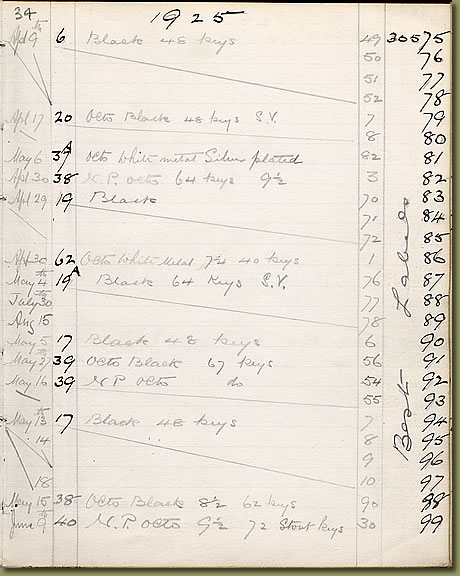 34 1925
Apl 9th 6 Black 48 keys 49 30575
50 76
51 77
52 78
Apl 17 20 Octo Black 48 keys S.V. 7 79
8 80
May 6 37A Octo White metal Silver plated 82 81
Apl 30 38 N.P. Octo 64 keys 9½ 3 82
Apl 29 19 Black 70 83
71 84
72 85
Apl 30 62 Octo White Metal 7¼ 40 keys 1 86
May 4th 19A Black 64 Keys S.V. 76 87
July 30 77 88
Aug 15 78 89
May 5 17 Black 48 keys 6 90
May 27th 39 Octo Black 67 keys 56 91
May 16 39 N.P. Octo do 54 92
55 93
May 13th 17 Black 48 keys 7 94
14 8 95
9 96
18 10 97
May 15 38 Octo Black 8½ 62 keys 90 98
June 9th 40 N.P. Octo 9½ 72 Stout keys 30 99
Best Labels